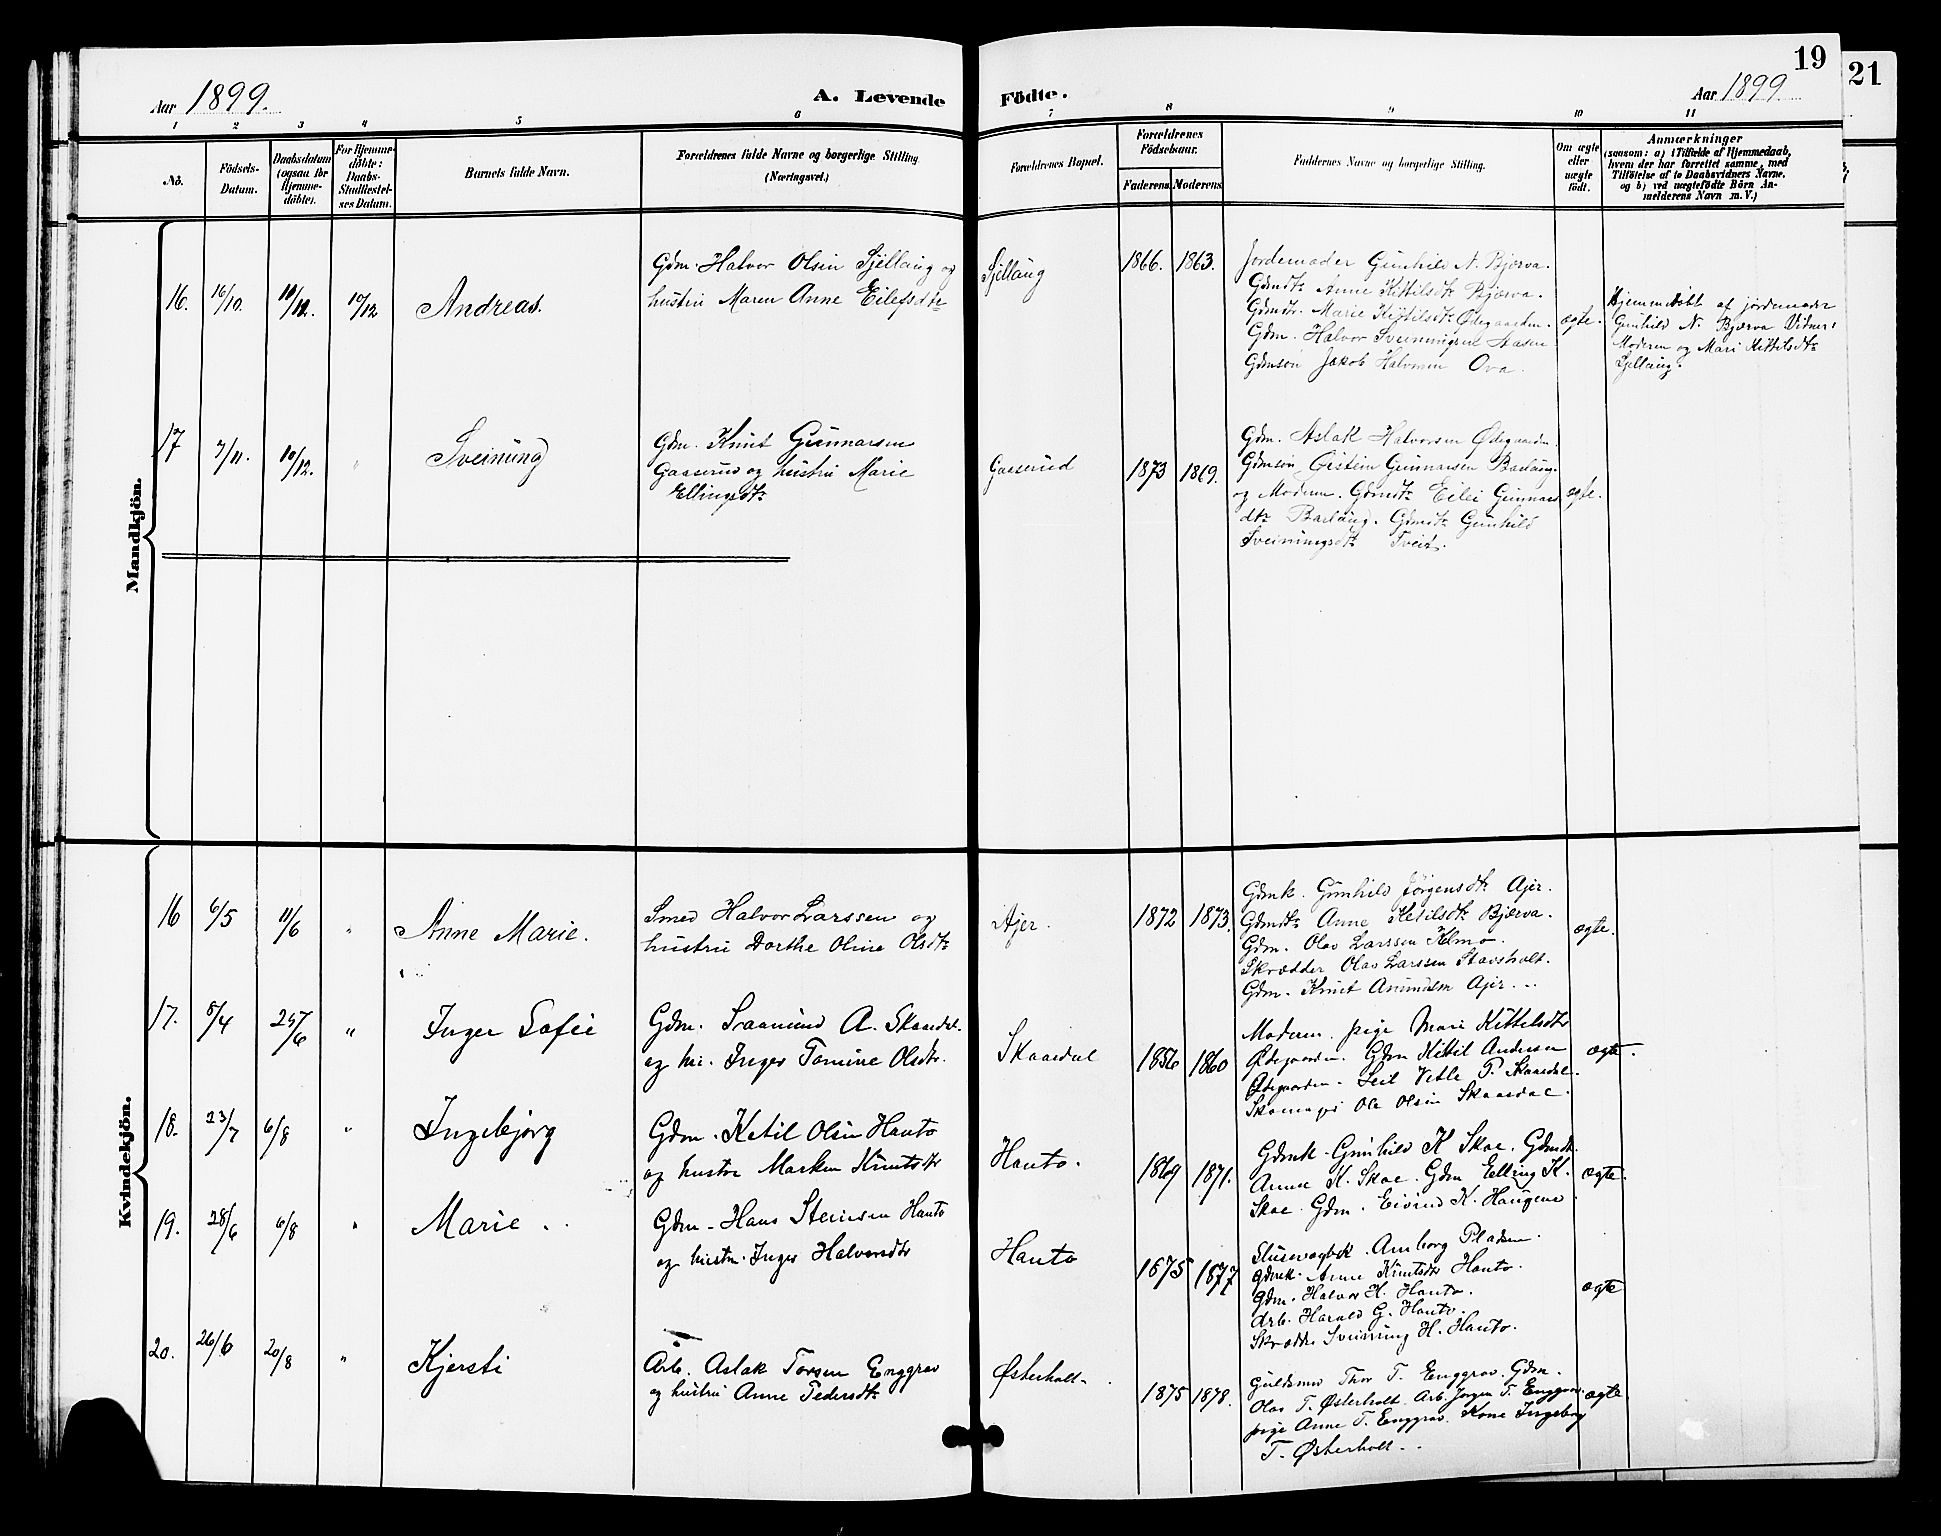 19
21
Aar 1899.
A. Levende
Födte.
Aar 1899
1 2 3 4 5 6 7 8 9 10 11
No.
Födsels-
Datum.
Daabsdatum
(ogsaa for
Hjemme-
døbte).
For Hjemme-
døbte:
Daabs-
Stadfæstel-
ses Datum.
Barnets fulde Navn.
Forældrenes fulde Navne og borgerlige Stilling
(Næringsvei.)
Forældrenes Bopæl.
Forældrenes
Födselsaar.
Faderens.
Moderens.
Faddernes Navne og borgerlige Stilling.
Om ægte
eller
uægte
født.
Anmærkninger
(saasom: a) i Tilfælde af Hjemmedaab,
hvem der har forrettet samme, med
Tilföielse af to Daabsvidners Navne,
og b) ved uægtefödte Börn An-
melderens Navn m. V.)
Mandkjön.
16.
16/10.
10/12.
10/12
Andreas.
Gdm. Halvor Olsen Sjellaug og
hustru Maren Anne Eilefsdtr
Sjellaug
1866.
1863.
Jordemoder Gunhild N. Bjærva.
Gdmdtr. Anne Kittilsdtr Bjærva.
Gdmdtr. Marie Kittilsdtr Ødegaarden.
Gdm. Halvor Sveinungsen Aasen
Gdmsøn Jakob Halvorsen Ova.
ægte.
Hjemmedøbt af jordemoder
Gunhild N. Bjærva Vidner:
Moderen og Mari Kittilsdtr
Sjellaug.
17
7/11.
10/12.
"
Sveinung
Gdm. Knut Gunnarsen
Gaaserud og hustru Marie
Ellingsdtr
Gaaserud
1873
1869.
Gdm. Aslak Halvorsen Ødegaarden
Gdmsøn Eistein Gunnarsen Barlaug.
og Moderen. Gdmdtr Eilei Gunnars
dtr Barlaug. Gdmdtr Gunhild
Sveinungsdtr Tveit.
ægte.
Kvindekjön.
16
6/5
11/6
"
Anne Marie.
Smed Halvor Larssen og
hustru Dorthe Oline Olsdtr
Ajer.
1872
1873.
Gdmk. Gunhild Jørgensdtr Ajer.
Gdmdtr Anne Ketilsdtr Bjærva.
Gdm. Olav Larssen Kelmo.
Skrædder Olav Larssen Stavsholt.
Gdm. Knut Amundsen Ajer.
ægte.
17.
8/4
25/6
"
Inger Sofie
Gdm. Saamund A. Skaasdal.
og hu. Inger Tomine Olsdtr.
Skaasdal
1856
1860
Moderen. pige Mari Kittilsdtr
Ødegaarden. Gdm Kittil Andersen
Ødegaarden. Leil Vetle P. Skaasdal.
Skomager Ole Olsen Skaasdal.
ægte.
18.
23/7
6/8
"
Ingebjørg
Gdm. Ketil Olsen Hauto
og hustru Marken Knutsdtr
Hauto.
1869
1871.
Gdmk. Gunhild K Skoe. Gdmdtr.
Anne K. Skoe. Gdm Elling K.
Skoe. Gdm. Eivind K. Haugene
ægte.
19.
28/6
6/8
"
Marie.
Gdm. Hans Steinsen Hauto
og hustru. Inger Halvorsdtr
Hauto
1875
1877
Slusevogtek. Amborg Pladsen.
Gdmk. Anne Knutsdtr Hauto.
Gdm. Halvor H. Hauto.
Arb. Harald G. Hauto.
Skrædder Sveinung H. Hauto.
ægte
20.
26/6
20/8
"
Kjersti
Arb. Aslak Torsen Enggrav
og hustru Anne Pedersdtr
Østerholt
1875
1878.
Guldsmed Thor T. Enggrav. Gdm.
Olav T. Østerholt. Arb. Jørgen T. Enggrav
pige Anne T. Enggrav. Kone Ingeborg
T. Østerholt.
ægte